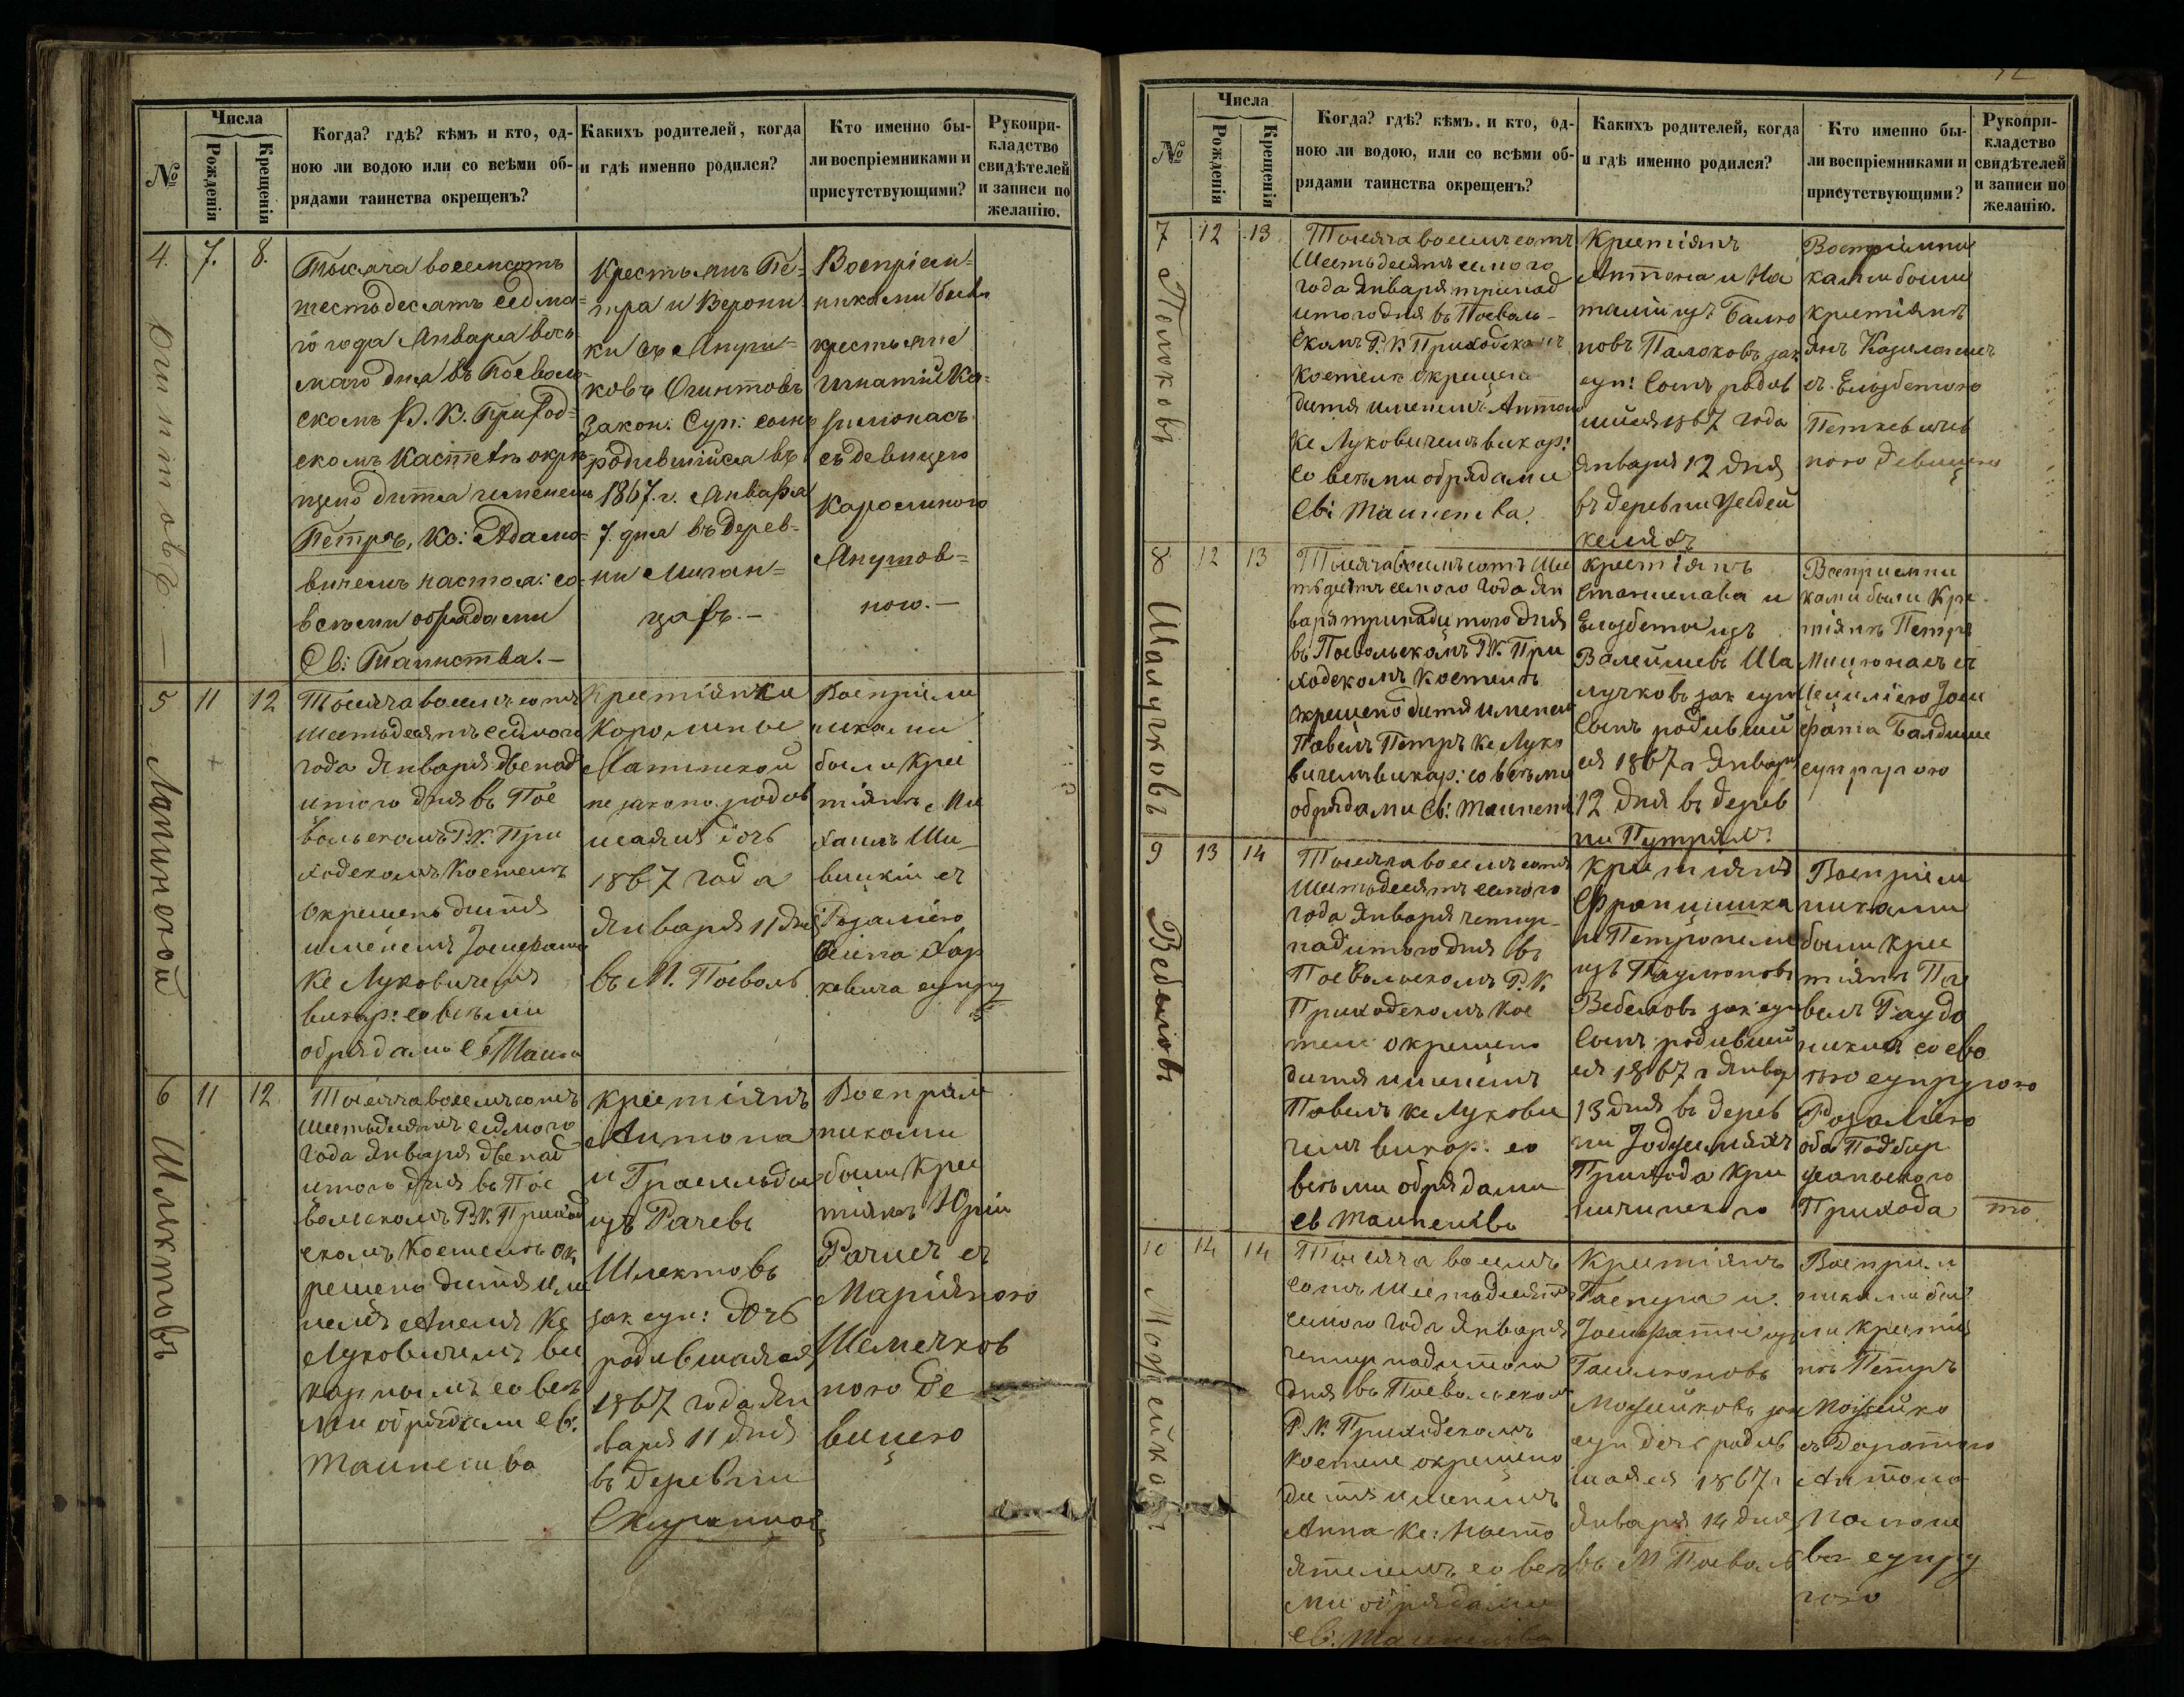 №
Числа
Рожденія
Крещенія
Когда? гдѣ? кѣмъ и кто, од-
ною ли водою или со всѣми об-
рядами таинства окрещенъ?
Какихъ родителей, когда
и гдѣ именно родился?
Кто именно бы-
ли воспріемниками и
присутствующими?
Рукопри-
кладство
свидѣтелей
и записи по
желанію.
4.
Огинтовъ.
7.
8.
Тысяча восемсотъ
шестьдесятъ седма-
го года Января вось
маго дня въ Поеволь-
скомъ Р. К. Приход-
скомъ Костелѣ окре-
щено дитя именемъ
Петръ, Кс: Адамо-
вичемъ настоя: со
всѣми обрядами
Св: Таинства.–
Крестьянъ Пе-
тра и Верони-
ки съ Янушковъ
Огинтовъ
Закон: Суп: сынъ
родившійся въ
1867. г. Января
7. дня въ Дерев-
ни
Воспріем-
никами были
крестьяне
Игнатій
съ девицею
Каролиною
Янушов-
ною.–
5
Лапинской
11
12
Тысяча восемъ сотъ
шестьдесятъ седмого
года Января двенад
цтого дня въ Пое
вольскомъ Р.К. При
ходскомъ Костелѣ
окрещено дитя
именемъ Іосефата
Кс Луковичемъ
викар: со всѣми
обрядами Св Таин
Крестіянки
Королины
Лапинской
незаконо родив
шаяся дочь
1867 года
Января 11 дня
въ М. Поеволь
Воспріем
никами
были Крес
тіянъ Ми
хаилъ Ши
вицкій съ
Розаліею
Осипа
кевича супру
6
Шлектовъ
11
12
Тысяча восемъ сотъ
шестьдесятъ седмого
года Января двенад
цтого дня въ Пое
вольскомъ Р.К. Приход
скомъ Костелѣ ок
рещено дитя име
немъ Анеля Кс
Луковичемъ ви
карнымъ со всѣ
ми обрядами Св:
Таинства
Крестіянъ
Антона
и Грасильды
изъ Рачевъ
Шлектовъ
зак суп: дочь
родившаяся
1867 года Ян
варя 11 дня
въ деревни
Воспріем
никами
были Крес
тіянъ Юрій
Рачисъ съ
Маріяною
Шлемечков
ною де
вицею
№
Числа
Рожденія
Крещенія
Когда? гдѣ? кѣмъ. и кто, од-
ною ли водою, или со всѣми об-
рядами таинства окрещенъ?
Какихъ родителей, когда
и гдѣ именно родился?
Кто именно бы-
ли воспріемниками и
присутствующими?
Рукопри-
кладство
свидѣтелей
и записи по
желанію.
7
Полоковъ
12
13
Тысяча восемъ сотъ
шестьдесятъ семого
года Января тринад
цтого дня въ Поеволь-
скомъ Р. К Приходскомъ
Костелѣ окрещено
дитя именемъ Антонъ
Кс Луковичемъ викар:
со всѣми обрядами
Св: Таинства.
Крестіянъ
Антона и На
таліи изъ Балю
новъ Палоковъ зак
суп: сынъ родив
шійся 1867 года
Января 12 дня
въ деревни
Воспріемни
ками были
крестіянъ
Янъ
съ Елизбетою
Петкевичев
ною девицею
8
Шалучковъ
12
13
Тысяча восемъ сотъ шес
тьдесятъ семого года Ян
варя тринадцтого дня
въ Поевольскомъ Р.К. При
ходскомъ Костелѣ
окрещено дитя именемъ
Павелъ Петръ Кс Луко
вичемъ викар: со всѣми
обрядами Св: Таинств
Крестіянъ
Станислава и
Елизбеты изъ
Валейшевъ Ша
лучковъ зак суп
сынъ родивший
ся 1867 г Января
12 дня въ дерев
ни
Воспріемни
ками были Крес
тіянъ Петръ
съ
Цециліею
Балдиша
супругою
9
Вебеловъ
13
14
Тысяча восемъ сотъ
шестьдесятъ семого
года Января четыр
надцтого дня въ
Поевольскомъ Р.К.
Приходскомъ Кос
телѣ окрещено
дитя именемъ
Павелъ Кс Лукови
чемъ викар: со
всѣми обрядами
Св Таинства
Крестіянъ
Францишка
и Петронели
изъ
Вебеловъ зак суп
сынъ родивший
ся 1867 г Янвр
13 дня въ дерев
ни
Прихода Кри
ничинского
Воспріем
никами
были крес
тіянъ Па
велъ Гаудо
со сво
ею супругою
Розаліею
оба Подбир
жанского
Прихода
10
14
14
Тысяча восемъ
сотъ шестьдесятъ
семого года Января
четырнадцтого
дня въ Поевольском
Р.К. Приходскомъ
Костелѣ окрещено
дитя именемъ
Анна Кс: Насто
ятелемъ со всѣ
ми обрядами
Св: Таинства
Крестіянъ
Гаспера и
Іосефаты изъ
Можейковъ зак
суп дочь родив
шаяся 1867 г
Января 14 дня
въ М Поеволь
Воспріем
никами бы
ли крестія
нъ Петръ
Можейко
съ Доротою
Антона
супру
гою